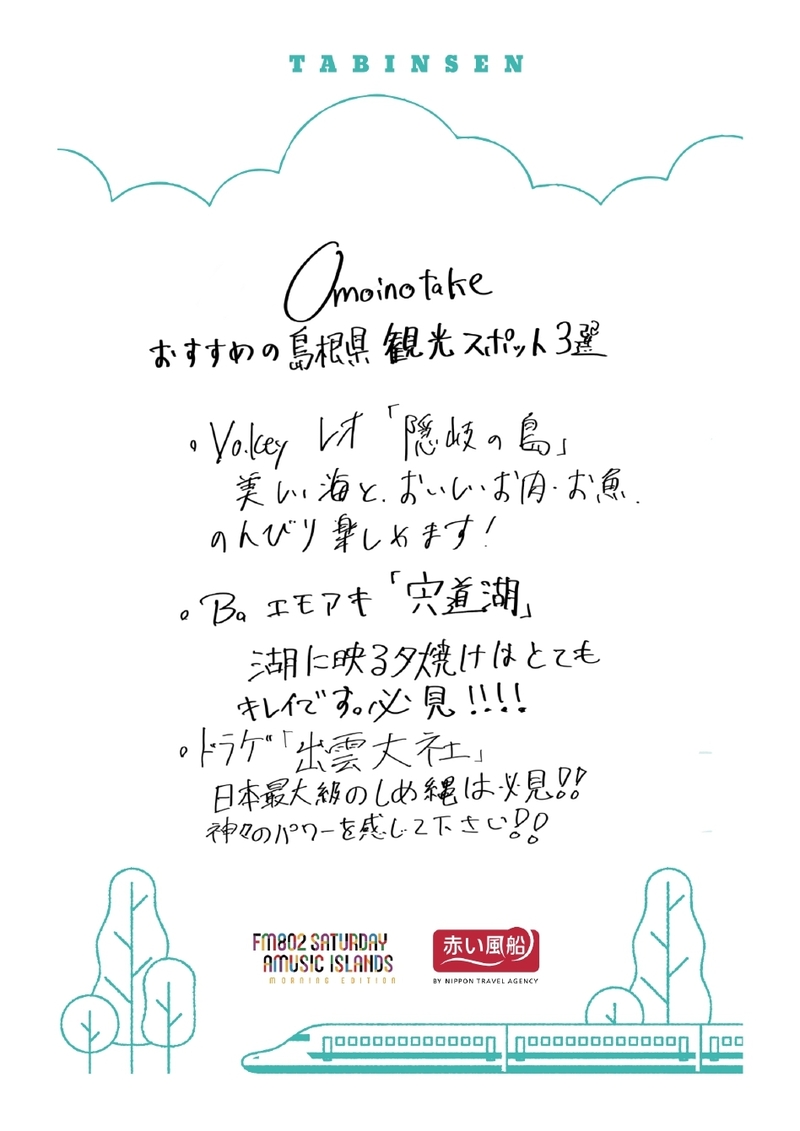 TABINSEN
Omoinotake
おすすめの島根県 観光スポット3選
• Vo.key レオ「隠岐の島」
美しい海と、おいしいお肉・お魚。
のんびり楽しめます!
• Ba エモアキ「宍道湖」
湖に映る夕焼けはとても
キレイです。必見!!!!
• ドラゲ「出雲大社」
日本最大級のしめ縄は必見!!
神々のパワーを感じて下さい!!
FM802 SATURDAY
AMUSIC ISLANDS
MORNING EDITION
赤い風船
BY NIPPON TRAVEL AGENCY